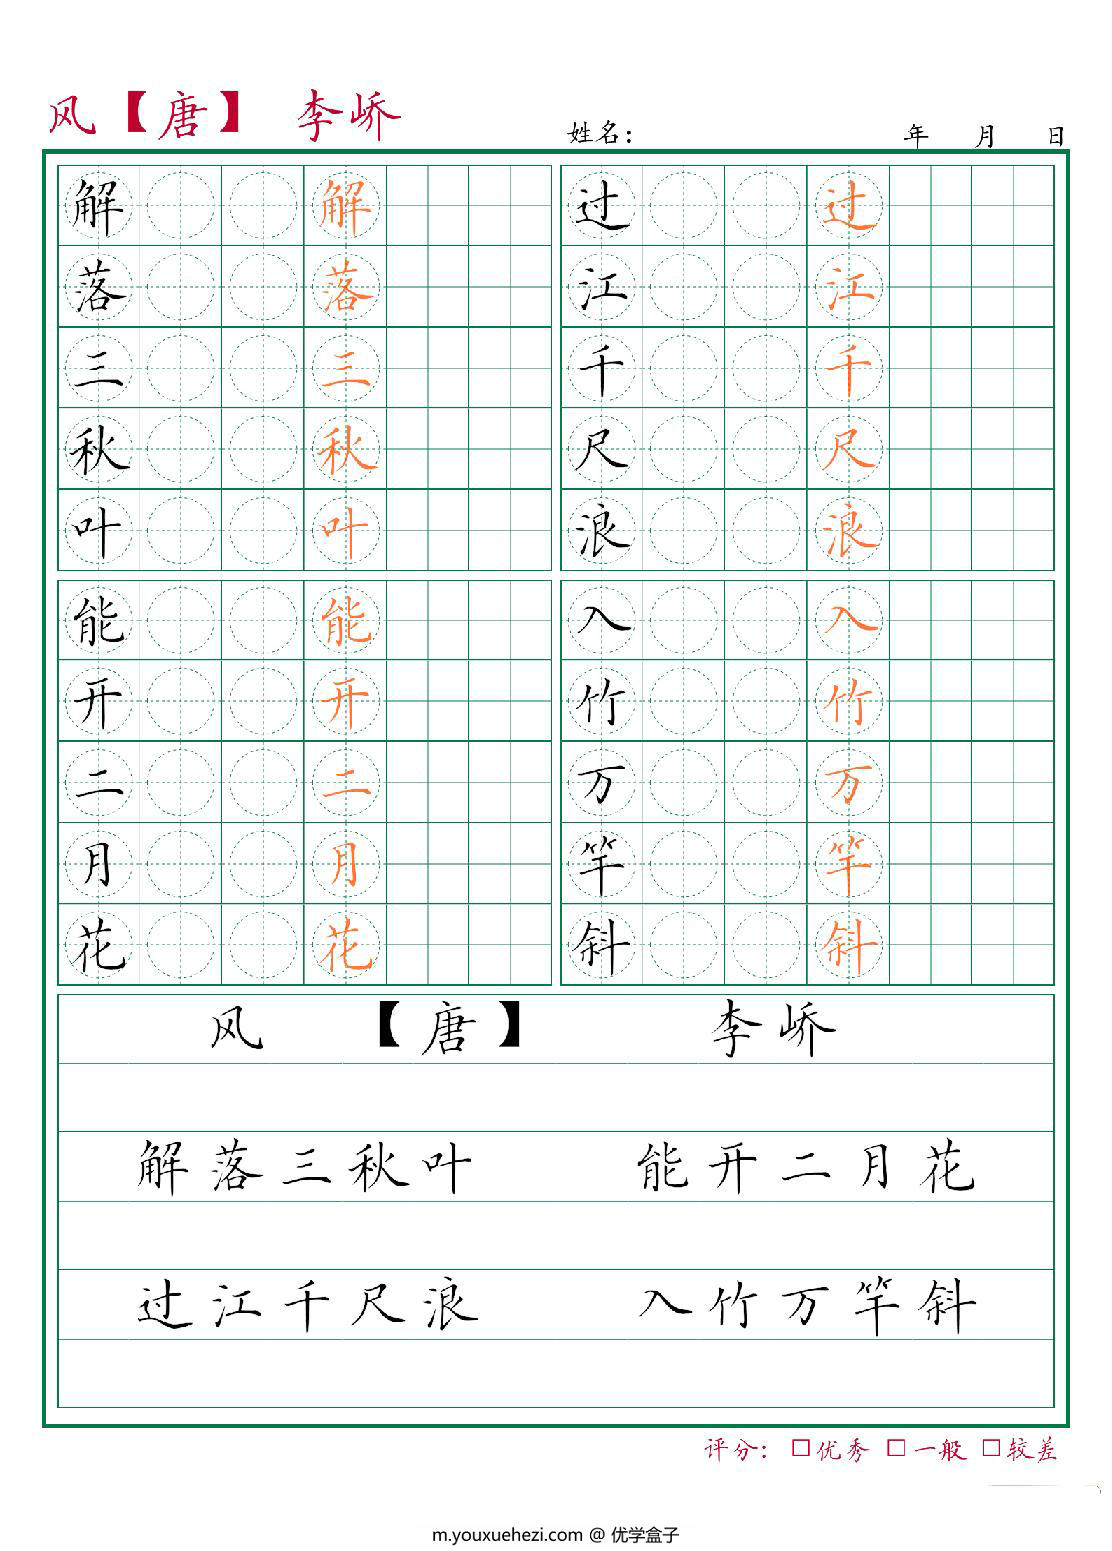 风【唐】 李峤
姓名： 年 月 日
解 解 过 过
落 落 江 江
三 三 千 千
秋 秋 尺 尺
叶 叶 浪 浪
能 能 入 入
开 开 竹 竹
二 二 万 万
月 月 竿 竿
花 花 斜 斜
风 【唐】 李峤
解落三秋叶 能开二月花
过江千尺浪 入竹万竿斜
评分： □优秀 □一般 □较差
m.youxuehezi.com @ 优学盒子